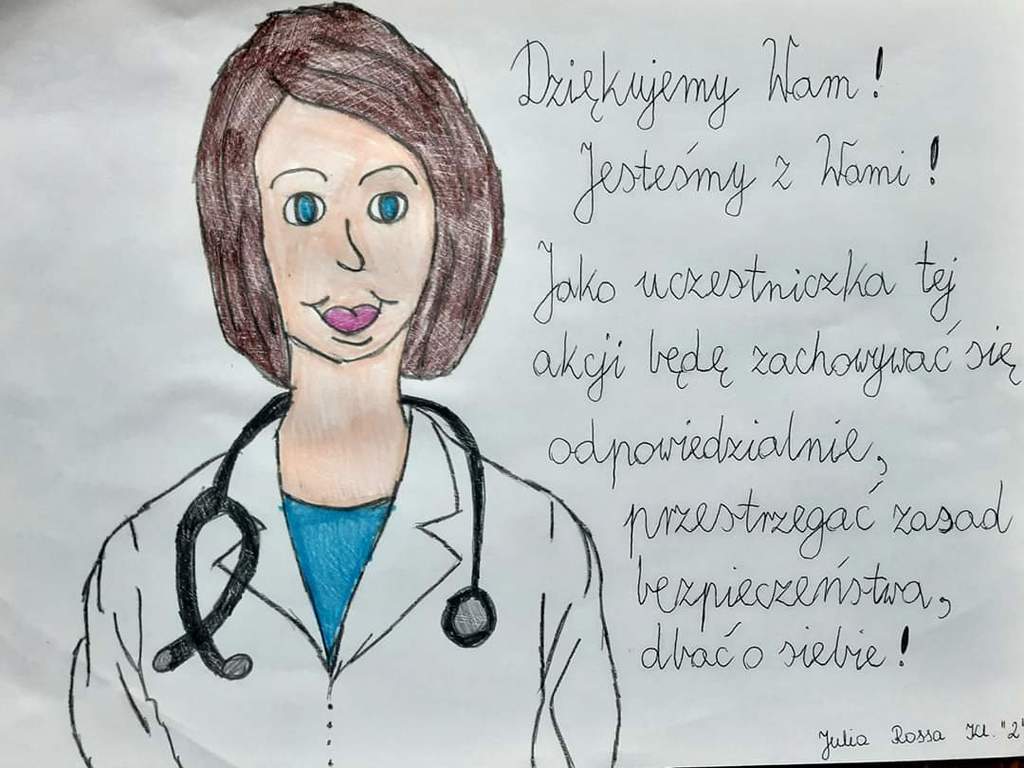 Dziękujemy Wam!
Jesteśmy z Wami!
Jako uczestniczka tej
akcji będę zachowywać się
odpowiedzialnie,
przestrzegać zasad
bezpieczeństwa,
dbać o siebie!
Julia Rossa Kl. "2"